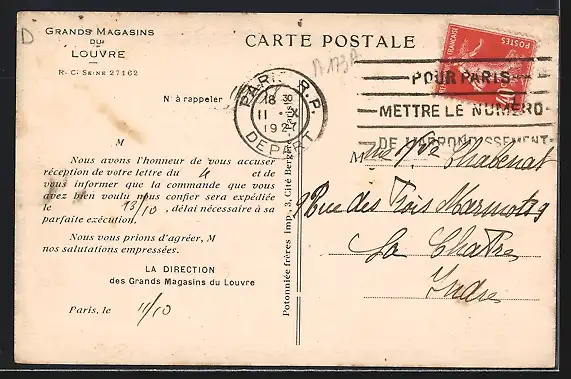 D
GRANDS MAGASINS
DU
LOUVRE
R. C. SEINE 27162
CARTE POSTALE
N° à rappeler
PARIS R.P.
18 30
11 X
1927
DEPART
POSTES
POUR PARIS
METTRE LE NUMERO
DE L'ARRONDISSEMENT
M
Nous avons l'honneur de vous accuser
réception de votre lettre du 4 et de
vous informer que la commande que vous
avez bien voulu nous confier sera expédiée
le 13/10, délai nécessaire à sa
parfaite exécution.
Nous vous prions d'agréer, M
nos salutations empressées.
LA DIRECTION
des Grands Magasins du Louvre
Paris, le 11/10
Potonniée frères Imp., 3, Cité Bergère, Paris
M Chabenat
9 Rue des Trois Marmots 9
La Chatre
Indre